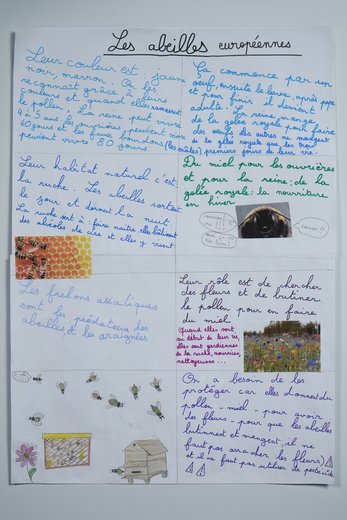 Les abeilles européennes
Leur couleur est : jaune
noir, marron. On les
reconnait grâce à leurs
couleurs et quand elles ramassent
le pollen. La reine peut vivre
4 à 5 ans les ouvrières peuvent vivre
60 jours et les faux bourdons (les mâles)
peuvent vivre 80 jours
Ça commence par un
oeuf, ensuite la larve, après pupe
et pour finir il devient
adulte. La reine mange
de la gelée royale pour faire
des oeufs les autres ne mangent
de la gelée royale que les trois
premiers jours de leur vie.
Leur habitat naturel c'est
la ruche. Les abeilles sortent
le jour et dorment la nuit.
La ruche sert à : faire naître, elles bâtissent
des alvéoles de cire et elles y vivent
Du miel pour les ouvrières
et pour la reine : de la
gelée royale : la nourriture
en hiver
Les frelons asiatiques
sont les prédateurs des
abeilles et les araignées
Leur rôle est de chercher
des fleurs et de butiner
le pollen pour en faire
du miel
(Quand elles sont
au début de leur vie,
elles sont gardiennes
de la ruche, nourrices,
nettoyeuses...
On a besoin de les
protéger car elles donnent du
pollen - miel - pour avoir
des fleurs - pour que les abeilles
butinent et mangent, il ne
faut pas arracher les fleurs)
et il ne faut pas utiliser de pesticide